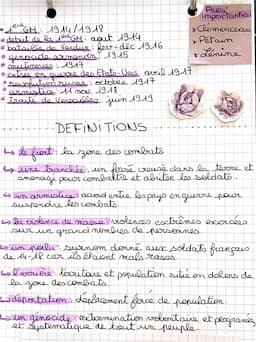 • 1ère GM : 1914/1918
• début de la 1ère GM : août 1914
• bataille de Verdun : fév-déc 1916
• génocide arménien : 1915
• mutineries : 1917
• entrée en guerre des Etats-Unis : avril 1917
• révolution russe : octobre 1917
• armistice : 11 nov. 1918
• Traité de Versailles : juin 1919
Pers importantes
> Clémenceau
> Pétain
> Lénine
DEFINITIONS
↳ le front : la zone des combats
↳ une tranchée : un fossé creusé dans la terre et
aménagé pour combattre et abriter les soldats.
↳ un armistice : accord entre les pays en guerre pour
suspendre les combats
↳ la violence de masse : violences extrêmes exercées
sur un grand nombres de personnes.
↳ un poilu : surnom donné aux soldats français
de 14-18 car ils étaient mal rasés.
↳ l'arrière : territoire et population situé en dehors de
la zone des combats.
↳ déportation : déplacement forcé de population.
↳ un génocide : extermination volontaire et programmée
et systématique de tout un peuple.